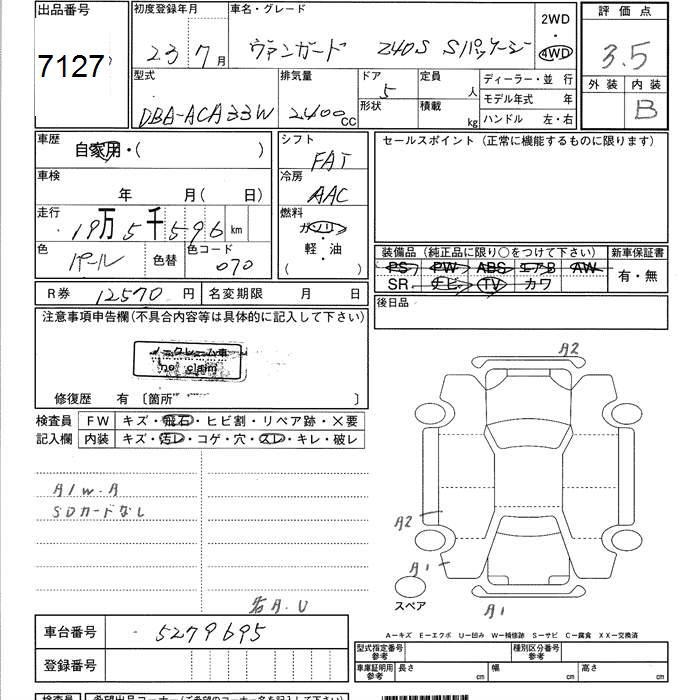 出品番号
7127
初度登録年月
23 7月
車名・グレード
ヴァンガード 240S Sパッケージ
2WD
・
4WD
評価点
3.5
外装 内装
B
型式
DBA-ACA33W
排気量
2400cc
ドア
5
形状
定員
人
積載
kg
ディーラー・並行
モデル年式 年
ハンドル 左・右
車歴
自家用・( )
車検
年 月( 日)
走行
19万5千596km
色
パール
色替
色コード
070
シフト
FAT
冷房
AAC
燃料
ガソリン
・
軽・油
( )
セールスポイント(正常に機能するものに限ります)
装備品(純正品に限り○をつけて下さい)
PS PW ABS エアB AW
SR ナビ TV カワ
新車保証書
有・無
後日品
R券 12570円
名変期限 月 日
注意事項申告欄(不具合内容等は具体的に記入して下さい)
ノークレーム車
no claim
修復歴 有 〔箇所 〕
検査員
記入欄
FW キズ・飛石・ヒビ割・リペア跡・×要
内装 キズ・汚レ・コゲ・穴・スレ・キレ・破レ
A/W.A
SDカードなし
若A.U
A2
A2
A1
A1
スペア
車台番号
5279695
登録番号
A−キズ E−エクボ U−凹み W−補修跡 S−サビ C−腐食 XX−交換済
型式指定番号
参考
種別区分番号
参考
車庫証明用
参考
長さ cm
幅 cm
高さ cm
検査員
希望出品コーナー(ご希望のコーナー名を記入下さい)